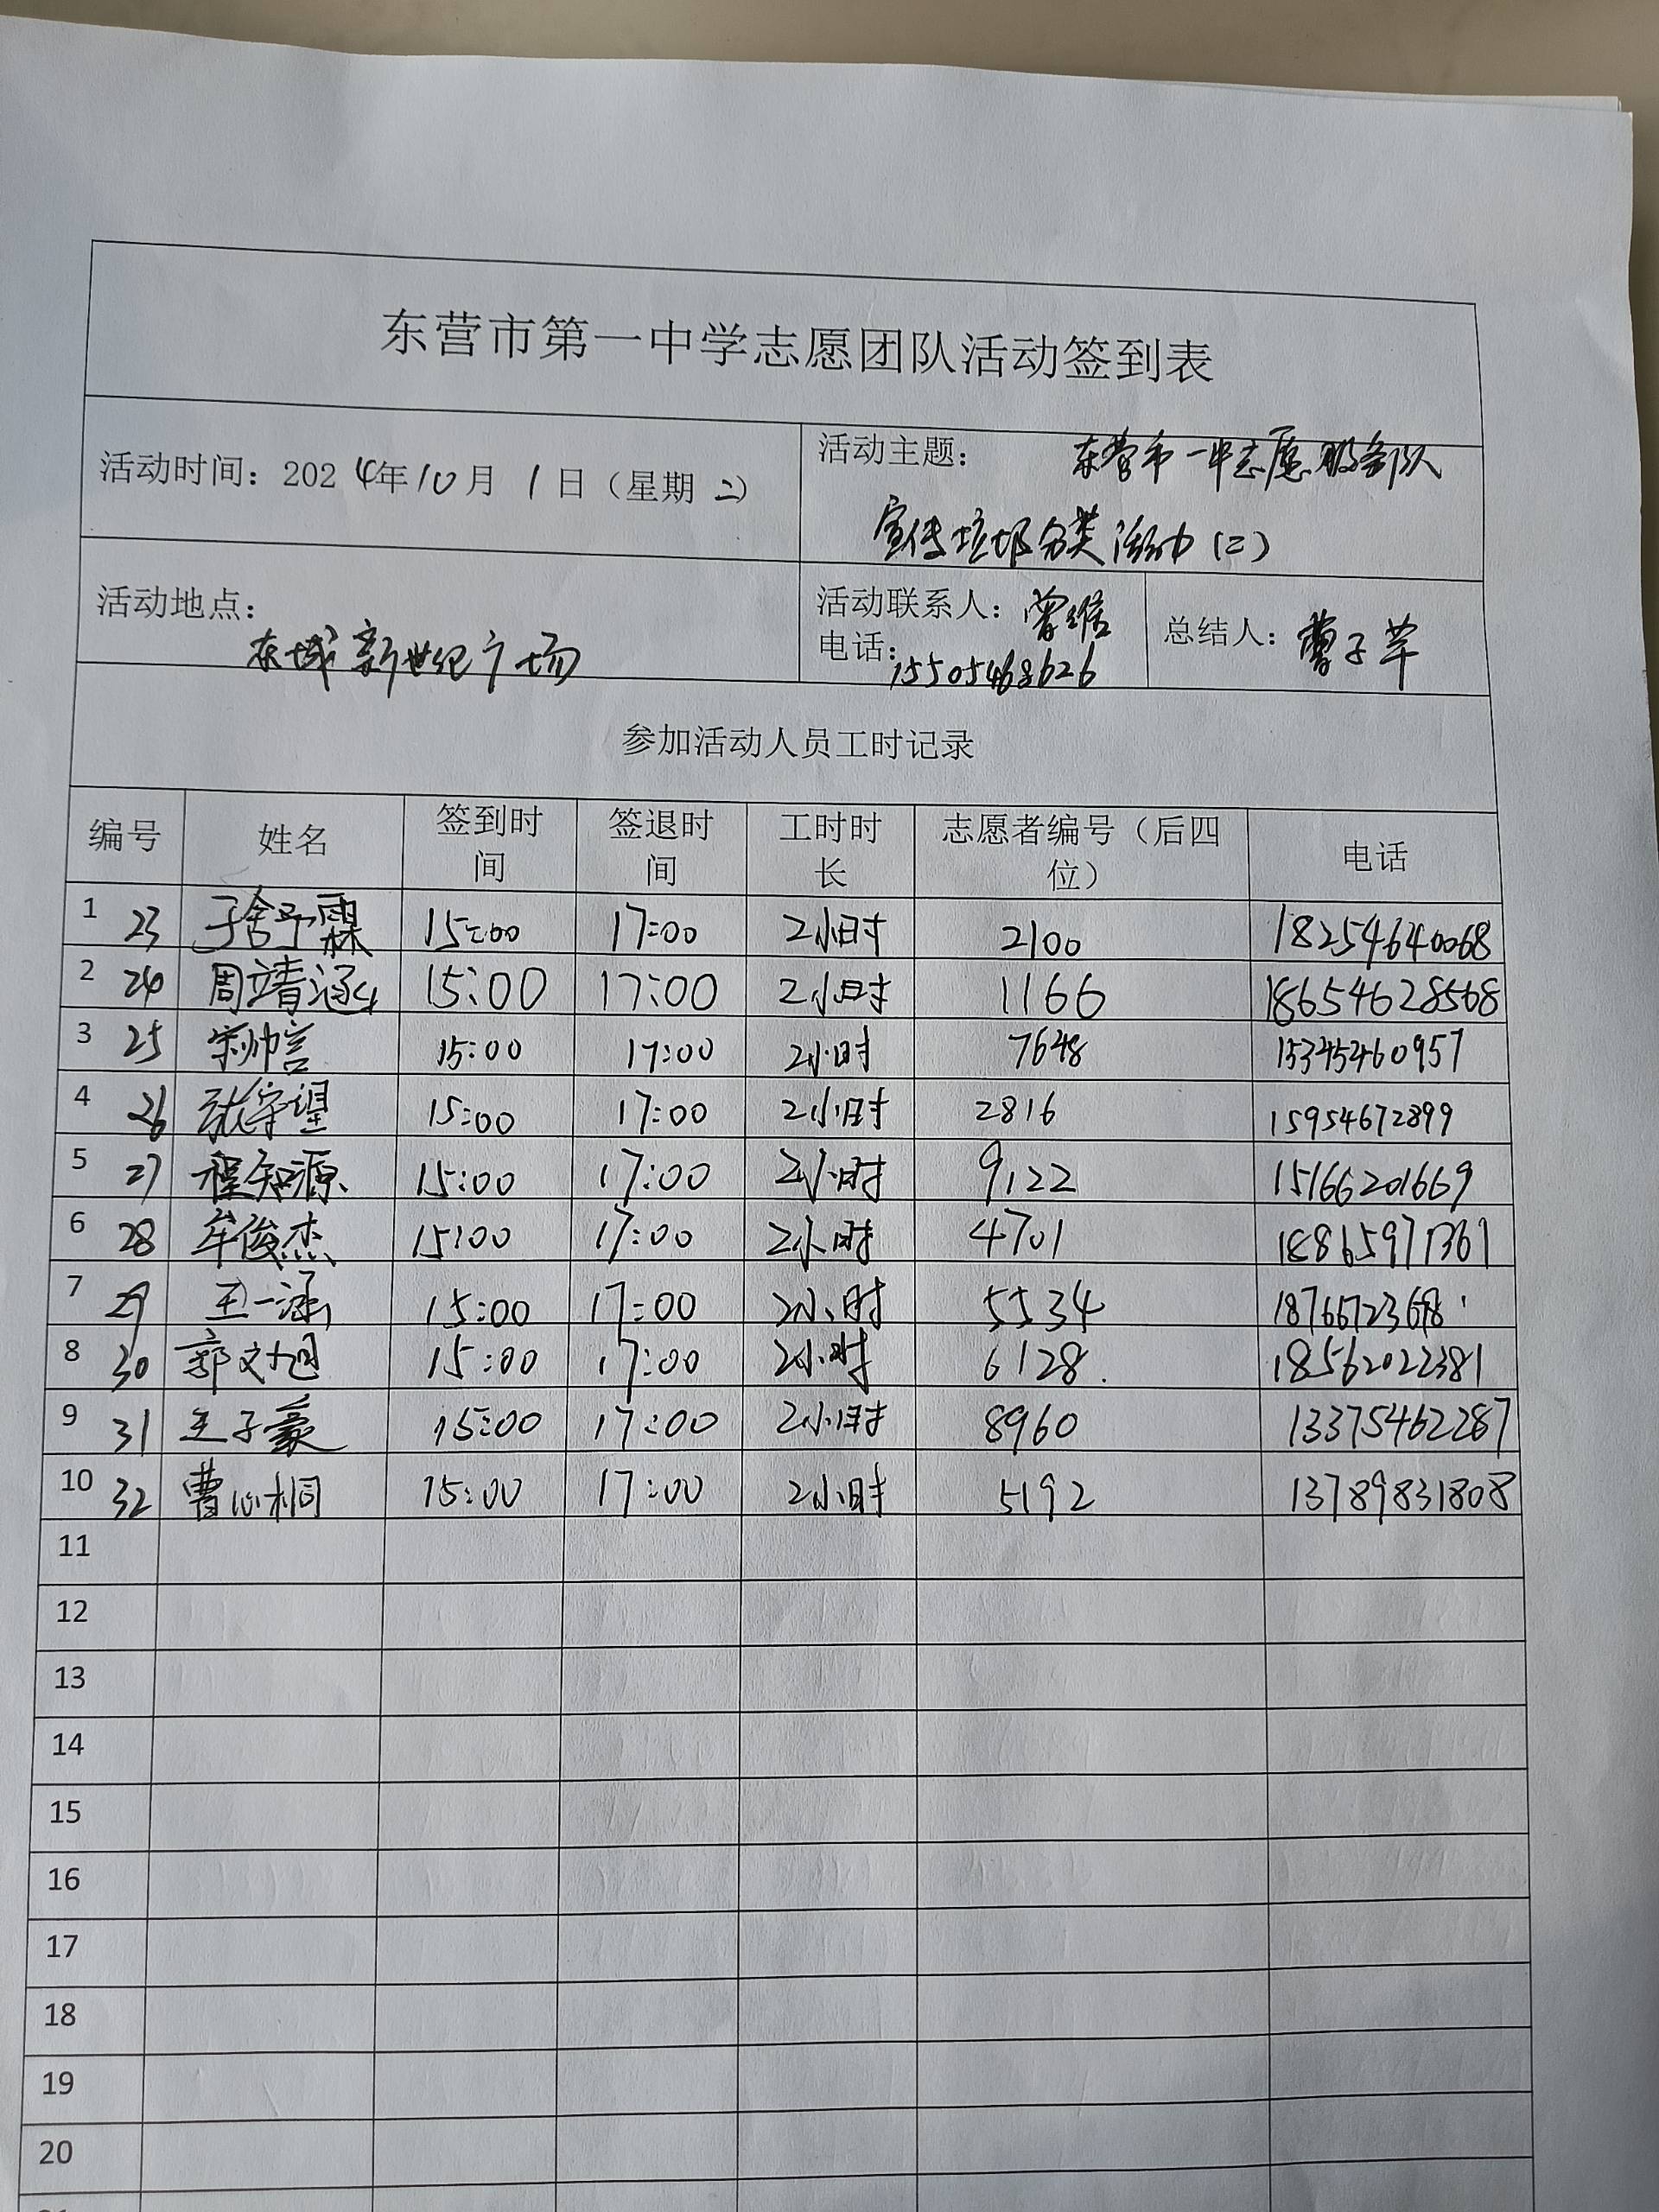 东营市第一中学志愿团队活动签到表
活动时间：2024年10月1日（星期二）
活动主题：东营市一中志愿服务队
宣传垃圾分类活动（二）
活动地点：
东城新世纪广场
活动联系人：曾维
电话：15505468626
总结人：曹子芊
参加活动人员工时记录
编号 姓名 签到时间 签退时间 工时时长 志愿者编号（后四位） 电话
1 23 于舍予霖 15:00 17:00 2小时 2100 18254640068
2 24 周靖涵 15:00 17:00 2小时 1166 18654628568
3 25 宋帅言 15:00 17:00 2小时 7648 15345460957
4 26 守望 15:00 17:00 2小时 2816 15954672899
5 27 程知源 15:00 17:00 2小时 9122 15166201669
6 28 牟俊杰 15:00 17:00 2小时 4701 18865971361
7 29 王一涵 15:00 17:00 2小时 5534
8 30 郭文旭 15:00 17:00 2小时 6128. 18562022381
9 31 王子豪 15:00 17:00 2小时 8960 13375462287
10 32 曹心桐 15:00 17:00 2小时 5192 13789831808
11
12
13
14
15
16
17
18
19
20